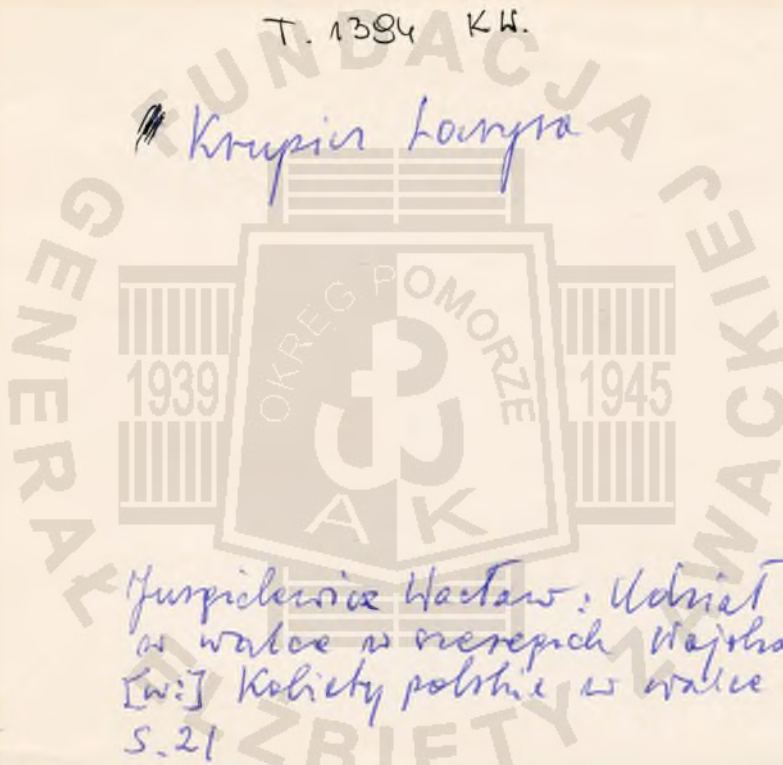 T. 1394 KW.
Krupicz Łarysa
Jurgielewicz Wacław: Udział
w walce w szeregach Wojska
[w:] Kobiety polskie w walce
S. 21
FUNDACJA
GENERAŁ
ELŻBIETY ZAWACKIEJ
OKRĘG POMORZE
1939
1945
AK